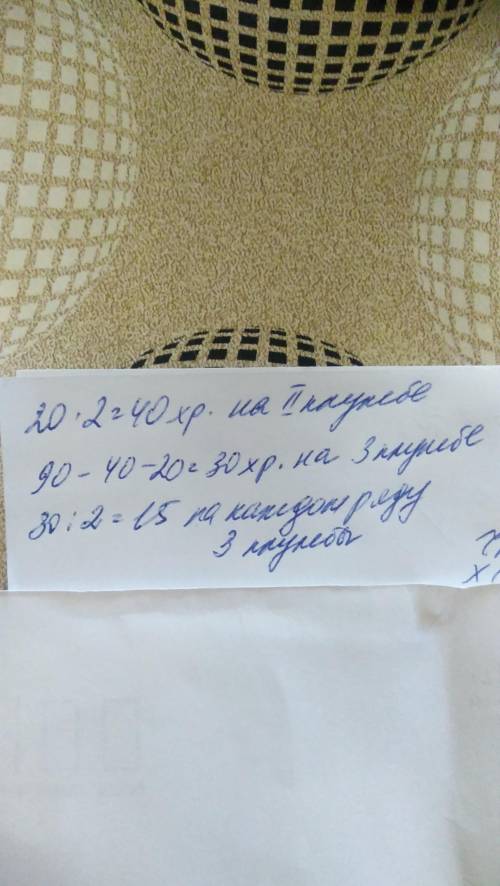 20·2=40хр. на II клумбе
90-40-20=30хр. на 3 клумбе
30:2=15 на каждом ряду
3 клумбы